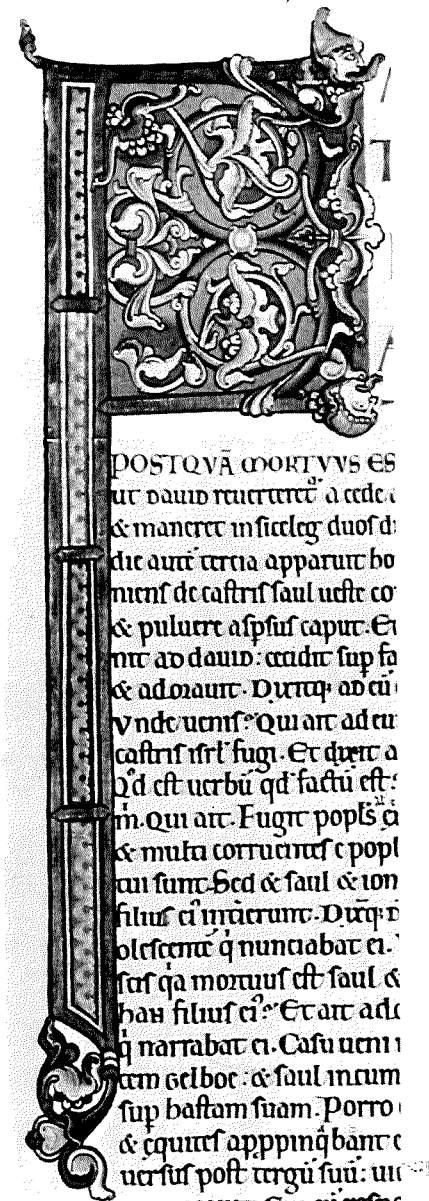 POSTQVĀ MORTVVS ES
ut dauid reuerteret᷑ a cede
& maneret in siceleg duos d
die autē tercia apparuit ho
niens de castris saul ueste co
& puluere asp̄sus caput. Et
nit ad dauid: cecidit sup fa
& adorauit. Dixitq; ad eū
Vnde uenis? Qui ait ad eu
castris isrl̄ fugi. Et dixit a
Qd̓ est uerbū qd̓ factū est:
m̓. Qui ait. Fugit popls̄ e
& multi corruentes e popl
tui sunt. Sed & saul & ion
filius eiꝰ interierunt. Dixitq; d
olescentē q̓ nunciabat ei.
scis qa mortuus est saul &
than filius eiꝰ? Et ait ado
q̓ narrabat ei. Casu ueni
tem gelboe: & saul incum
sup hastam suam. Porro
& equites appropinq̓bant
uersus post tergū suū: ui